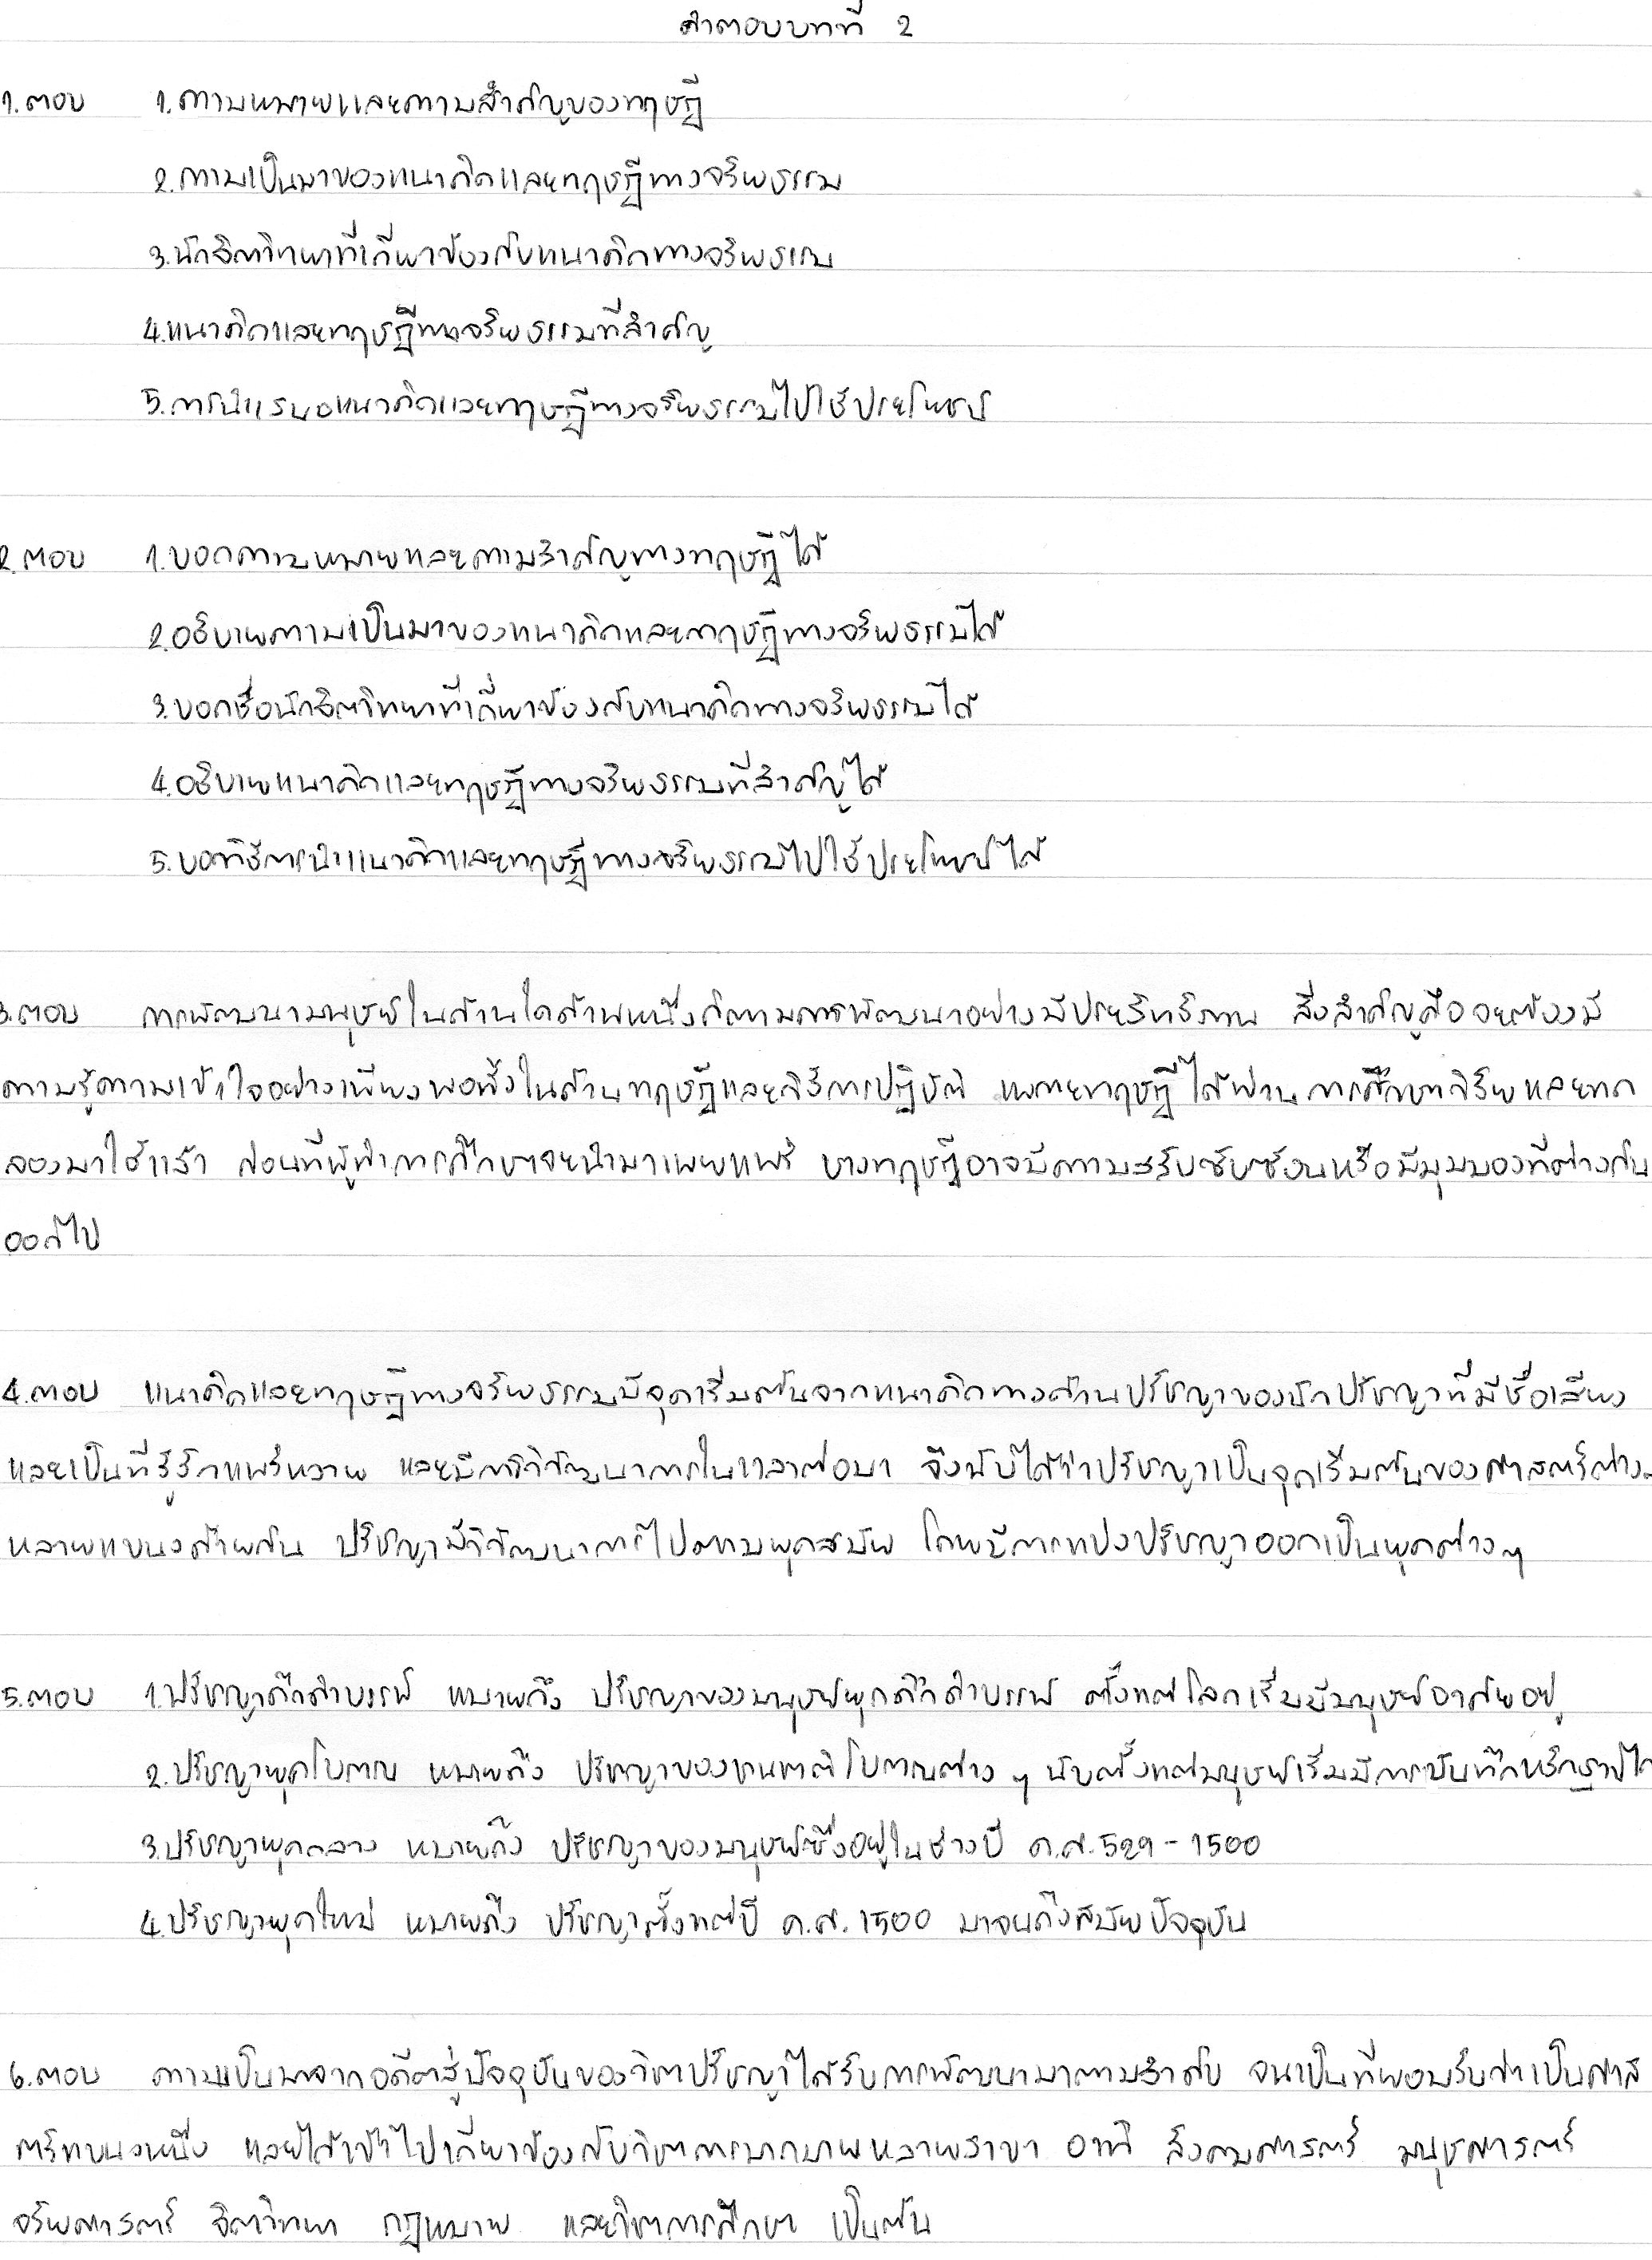 คำตอบบทที่ 2
1.ตอบ 1.ความหมายและความสำคัญของทฤษฎี
2.ความเป็นมาของแนวคิดและทฤษฎีทางจริยธรรม
3.นักจิตวิทยาที่เกี่ยวข้องกับแนวคิดทางจริยธรรม
4.แนวคิดและทฤษฎีทางจริยธรรมที่สำคัญ
5.การนำเสนอแนวคิดและทฤษฎีทางจริยธรรมไปใช้ประโยชน์
2.ตอบ 1.บอกความหมายและความสำคัญทางทฤษฎีได้
2.อธิบายความเป็นมาของแนวคิดและทฤษฎีทางจริยธรรมได้
3.บอกชื่อนักจิตวิทยาที่เกี่ยวข้องกับแนวคิดทางจริยธรรมได้
4.อธิบายแนวคิดและทฤษฎีทางจริยธรรมที่สำคัญได้
5.บอกวิธีการนำแนวคิดและทฤษฎีทางจริยธรรมไปใช้ประโยชน์ได้
3.ตอบ การพัฒนามนุษย์ในด้านใดด้านหนึ่งก็ตามการพัฒนาอย่างมีประสิทธิภาพ สิ่งสำคัญคือจะต้องมี
ความรู้ความเข้าใจอย่างเพียงพอทั้งในด้านทฤษฎีและวิธีการปฏิบัติ เพราะทฤษฎีได้ผ่านการศึกษาวิจัยและทด
ลองมาใช้แล้ว ก่อนที่ผู้ทำการศึกษาจะนำมาเผยแพร่ บางทฤษฎีอาจมีความสลับซับซ้อนหรือมีมุมมองที่ต่างกัน
ออกไป
4.ตอบ แนวคิดและทฤษฎีทางจริยธรรมมีจุดเริ่มต้นจากแนวคิดทางด้านปรัชญาของนักปรัชญาที่มีชื่อเสียง
และเป็นที่รู้จักแพร่หลาย และมีการวิวัฒนาการในเวลาต่อมา จึงนับได้ว่าปรัชญาเป็นจุดเริ่มต้นของศาสตร์ต่างๆ
หลายแขนงด้วยกัน ปรัชญามีวิวัฒนาการไปตามยุคสมัย โดยมีการแบ่งปรัชญาออกเป็นยุคต่างๆ
5.ตอบ 1.ปรัชญาดึกดำบรรพ์ หมายถึง ปรัชญาของมนุษย์ยุคดึกดำบรรพ์ ตั้งแต่โลกเริ่มมีมนุษย์อาศัยอยู่
2.ปรัชญายุคโบราณ หมายถึง ปรัชญาของชนชาติโบราณต่าง ๆ นับตั้งแต่มนุษย์เริ่มมีการบันทึกหลักฐานไว้
3.ปรัชญายุคกลาง หมายถึง ปรัชญาของมนุษย์ซึ่งอยู่ในช่วงปี ค.ศ.529 - 1500
4.ปรัชญายุคใหม่ หมายถึง ปรัชญาตั้งแต่ปี ค.ศ. 1500 มาจนถึงสมัยปัจจุบัน
6.ตอบ ความเป็นมาจากอดีตสู่ปัจจุบันของวิชาปรัชญาได้รับการพัฒนามาตามลำดับ จนเป็นที่ยอมรับว่าเป็นศาส
ตร์แขนงหนึ่ง และได้เข้าไปเกี่ยวข้องกับวิชาการมากมายหลายสาขา อาทิ สังคมศาสตร์ มนุษศาสตร์
จริยศาสตร์ จิตวิทยา กฎหมาย และวิชาการศึกษา เป็นต้น